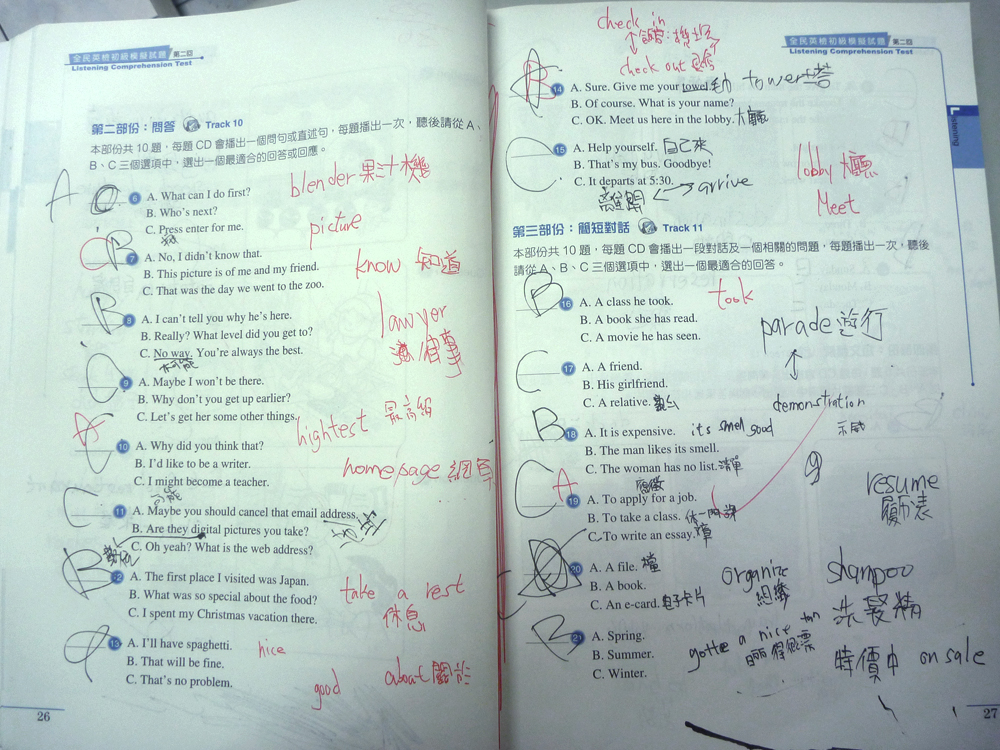 全民英檢初級模擬試題 第二回
Listening Comprehension Test
第二部份：問答 Track 10
本部份共 10 題，每題 CD 會播出一個問句或直述句，每題播出一次，聽後請從 A、
B、C 三個選項中，選出一個最適合的回答或回應。
blender 果汁機
A
6 A. What can I do first?
B. Who's next?
C. Press enter for me.
picture
B
7 A. No, I didn't know that.
B. This picture is of me and my friend.
C. That was the day we went to the zoo.
know 知道
B
8 A. I can't tell you why he's here.
B. Really? What level did you get to?
C. No way. You're always the best.
不可能
lawyer
9 A. Maybe I won't be there.
B. Why don't you get up earlier?
C. Let's get her some other things.
hightest 最高級
A
10 A. Why did you think that?
B. I'd like to be a writer.
C. I might become a teacher.
可能
homepage 網頁
C
11 A. Maybe you should cancel that email address.
地址
B. Are they digital pictures you take?
數位
C. Oh yeah? What is the web address?
B
12 A. The first place I visited was Japan.
B. What was so special about the food?
C. I spent my Christmas vacation there.
take a rest
休息
13 A. I'll have spaghetti.
B. That will be fine.
C. That's no problem.
nice
good
about 關於
26
全民英檢初級模擬試題 第二回
Listening Comprehension Test
Listening
check in
check out
B
14 A. Sure. Give me your towel. tower 塔
B. Of course. What is your name?
C. OK. Meet us here in the lobby. 大廳
C
15 A. Help yourself. 自己來
B. That's my bus. Goodbye!
C. It departs at 5:30.
離開 arrive
lobby 大廳
Meet
第三部份：簡短對話 Track 11
本部份共 10 題，每題 CD 會播出一段對話及一個相關的問題，每題播出一次，聽後
請從 A、B、C 三個選項中，選出一個最適合的回答。
B
16 A. A class he took.
B. A book she has read.
C. A movie he has seen.
took
parade 遊行
C
17 A. A friend.
B. His girlfriend.
C. A relative.
demonstration
示威
B
18 A. It is expensive. its smell good
B. The man likes its smell.
C. The woman has no list. 清單
應徵
C A
19 A. To apply for a job.
B. To take a class.
C. To write an essay.
g
resume
履歷表
20 A. A file. 檔
B. A book.
C. An e-card. 电子卡片
organize
組織
shampoo
洗髮精
B
21 A. Spring.
B. Summer.
C. Winter.
a nice tan
特價中 on sale
27